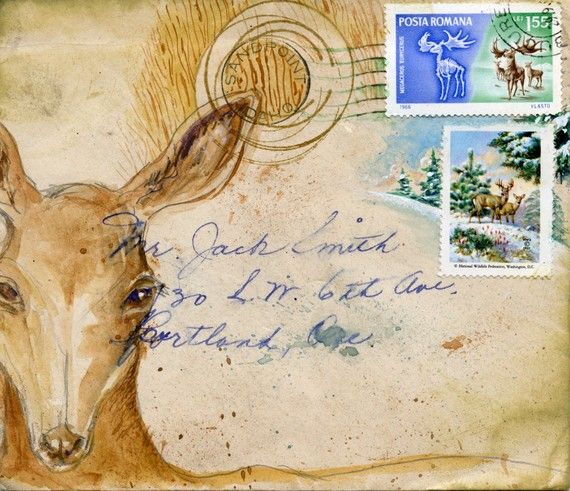 POSTA ROMANA
LEI 155
MEGACEROS EURYCEROS
1966
VLASTO
SANDPOINT
IDAHO
© National Wildlife Federation, Washington, D.C.
Mr. Jack Smith
S.W. 6th Ave.
Portland, Ore